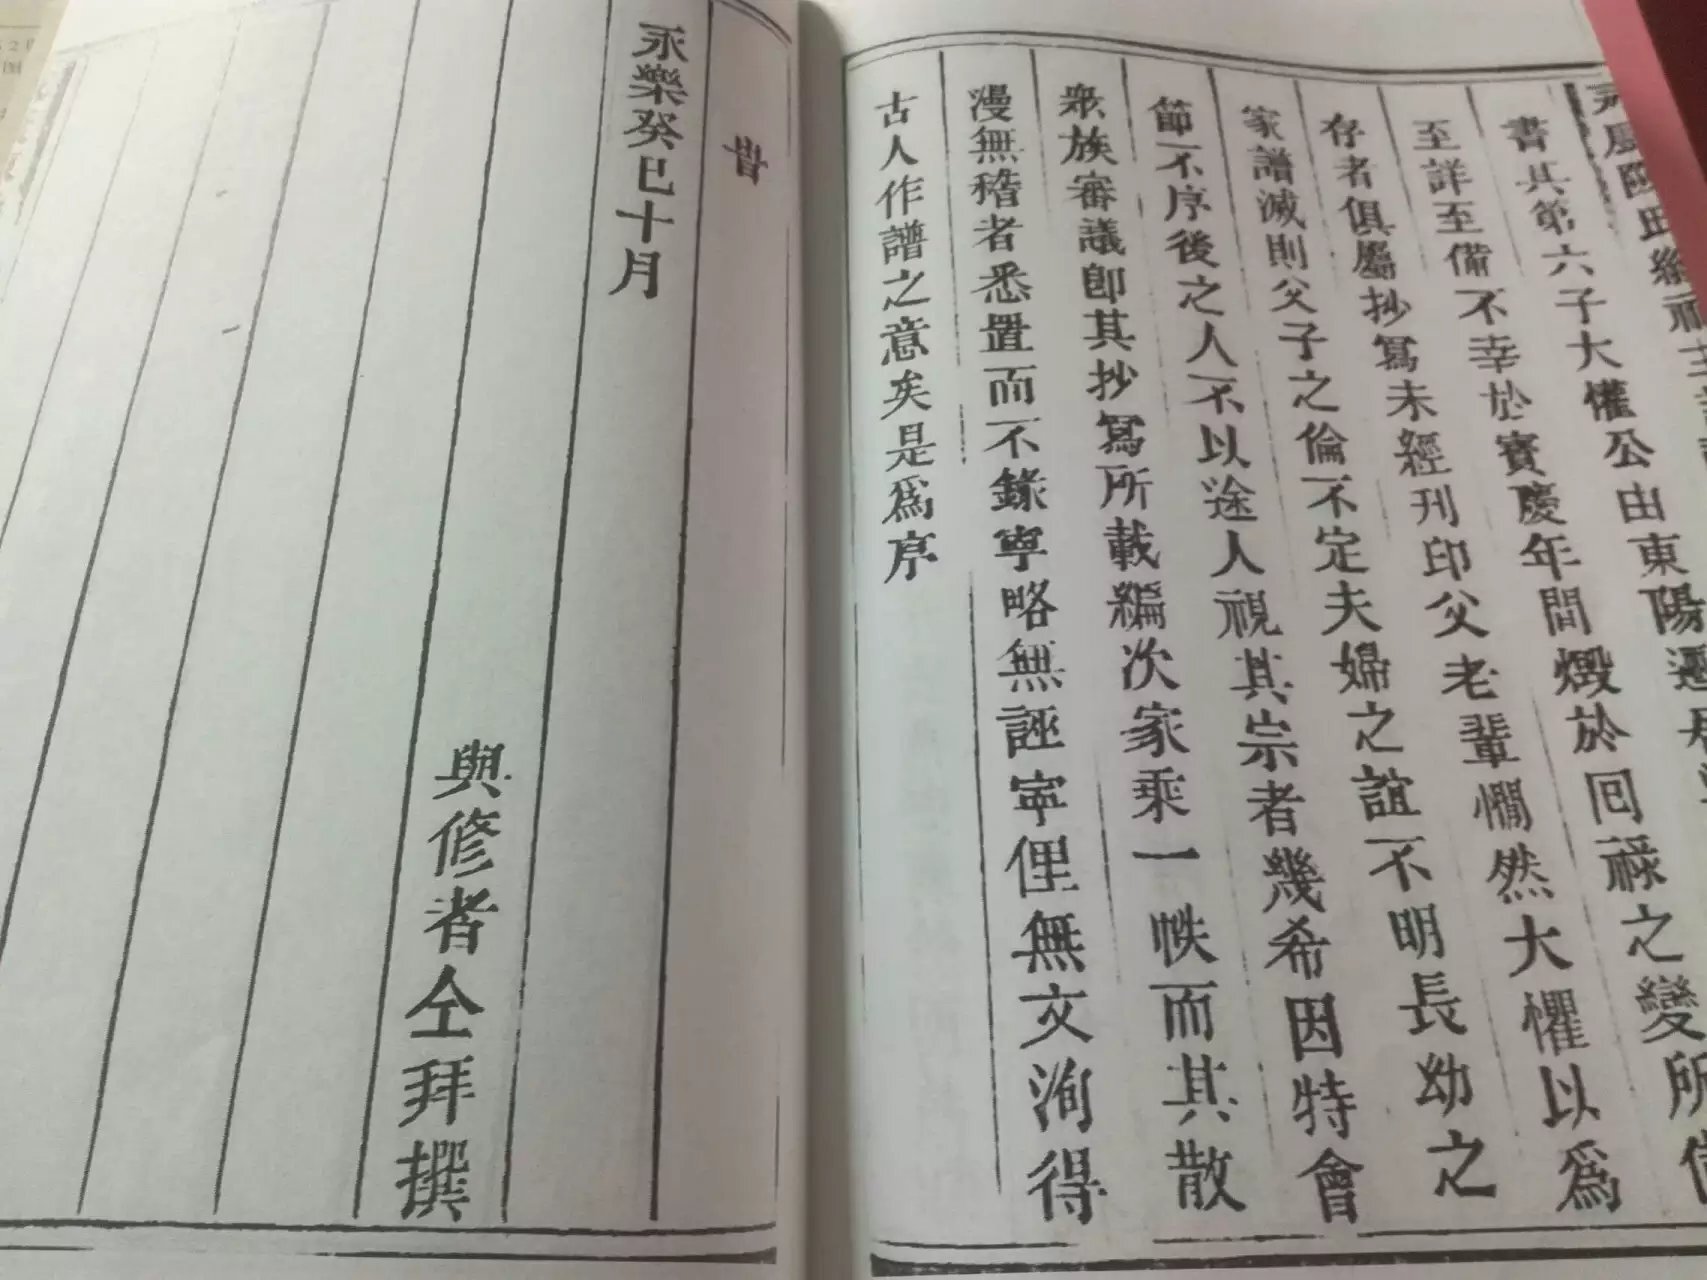 書其第六子大懽公由東陽遷
至詳至備不幸於寶慶年間燬於回祿之變所
存者俱屬抄寫未經刊印父老輩憪然大懼以為
家譜滅則父子之倫不定夫婦之誼不明長幼之
節不序後之人不以途人視其宗者幾希因特會
衆族審議即其抄寫所載編次家乘一帙而其散
漫無稽者悉置而不錄寧略無誣寧俚無文洵得
古人作譜之意矣是為序
旹
永樂癸巳十月
與修者仝拜撰